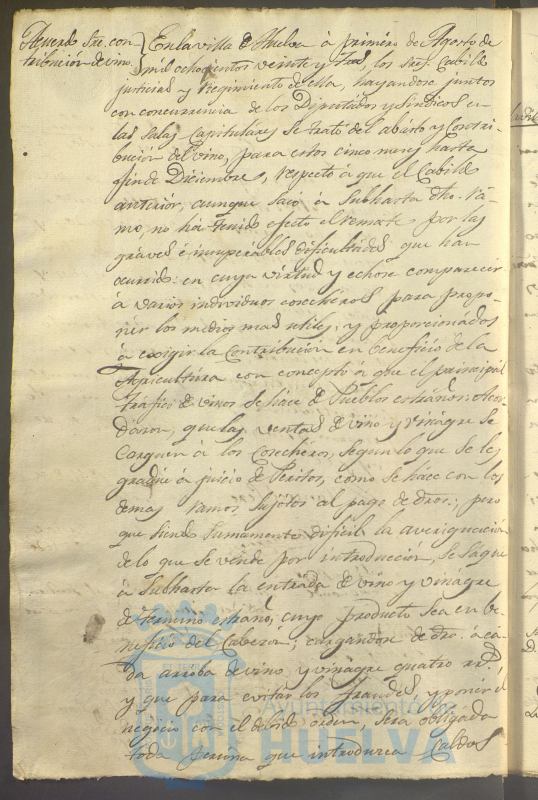 Acuerdo Sre. con-
tribución de vino.
En la villa de Huelva à primero de Agosto de
mil ochocientos veinte y tres, los Sres. Cabildo
justicia y Regimiento de ella, hayandose juntos
con concurrencia de los Diputados y Sindicos en
las Salas Capitulares Se trató del abasto y Contri-
bución del vino, para estos cinco meses hasta
fin de Diciembre, respecto à que el Cabildo
anterior, aunque sacó à Subhasta dho. ra-
mo, no há tenido efecto el remate por las
graves é insuperables dificultades que han
ocurrido: en cuya virtud y echose comparecer
à varios individuos cosecheros para propo-
ner los medios mas utiles, y proporcionados
à exigir la Contribución en beneficio de la
Agricultura con concepto à que el principal
trafico de vinos se hace de Pueblos estraños: Acor-
daron, que las ventas de vino y vinagre se
Carguen à los Cosecheros, segun lo que se les
gradue à juicio de Peritos, como se hace con los
demas ramos sujetos al pago de dros.; pero
que siendo sumamente dificil la averiguacion
de lo que se vende por introduccion, se saque
à Subhasta la entrada de vino y vinagre
de termino estraño, cuyo producto sea en be-
neficio del Cabezon; cargandose de dro. à ca-
da arroba de vino y vinagre quatro rs.,
y que para evitar los fraudes, y poner el
negocio con el debido orden, será obligada
toda persona que introduzca Caldos
Ayuntamiento de
HUELVA